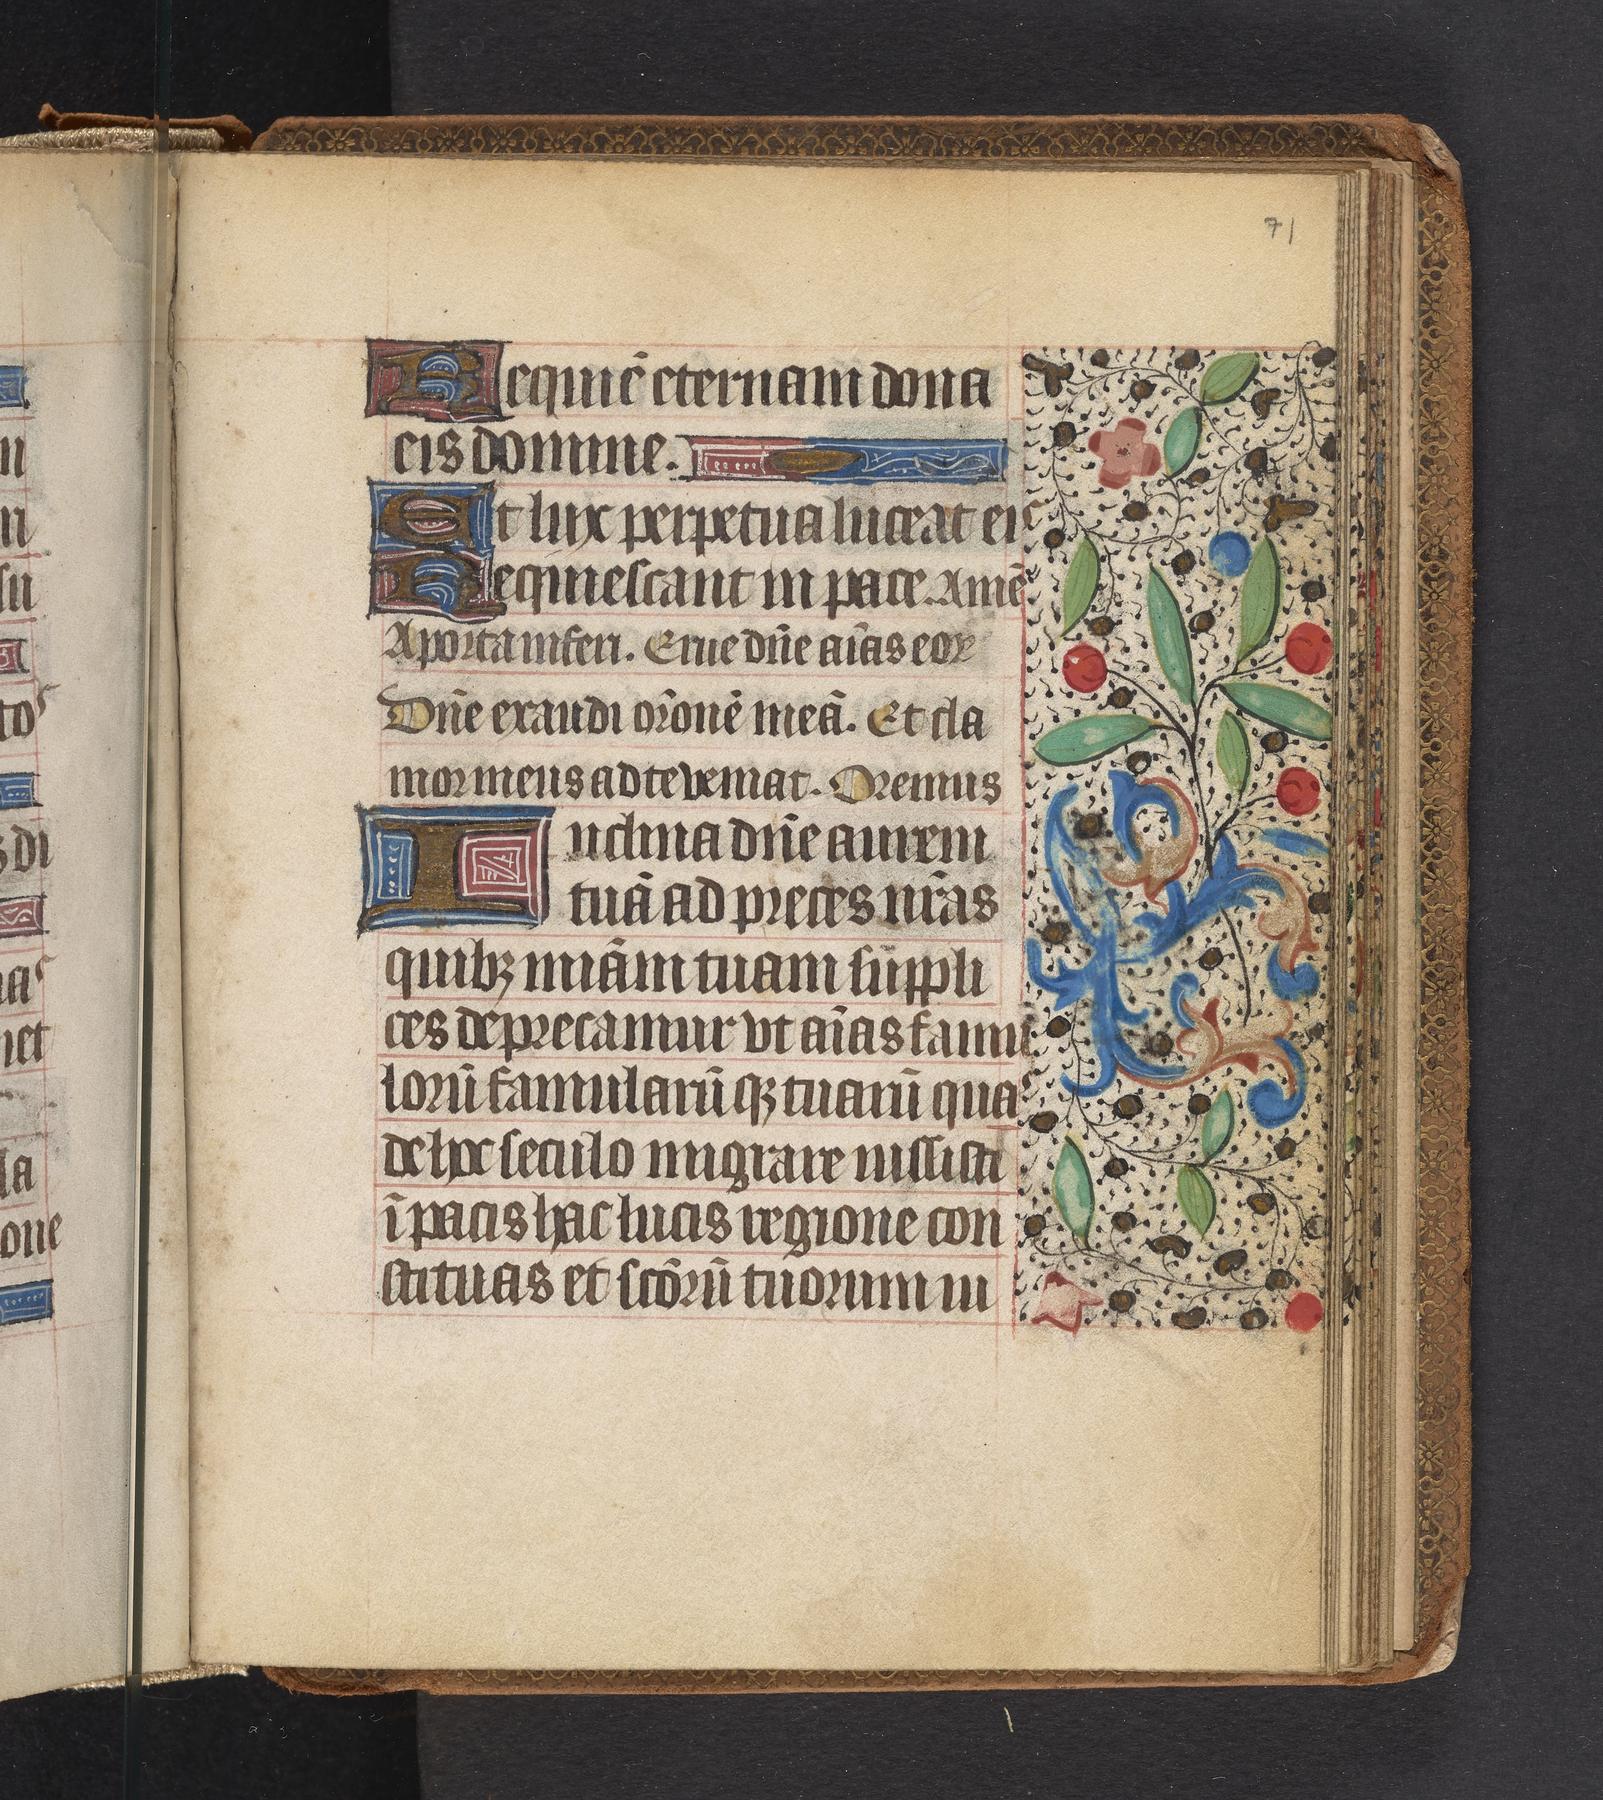 71
Requiē eternam dona
eis domine.
Et lux perpetua luceat eis
Requiescant in pace. Amē
A porta inferi. Erue dn̄e aīas eoꝝ
Dn̄e exaudi or̄onē meā. Et cla
mor meus ad te veniat. Oremus
Inclina dn̄e aurem
tuā ad preces nr̄as
quibꝫ miām tuam suppli
ces deprecamur vt aīas famu
lorū famularū qꝫ tuarū quas
de hoc seculo migrare iussisti
ī pacis hac lucis regione con
stituas et scōrū tuorum iu